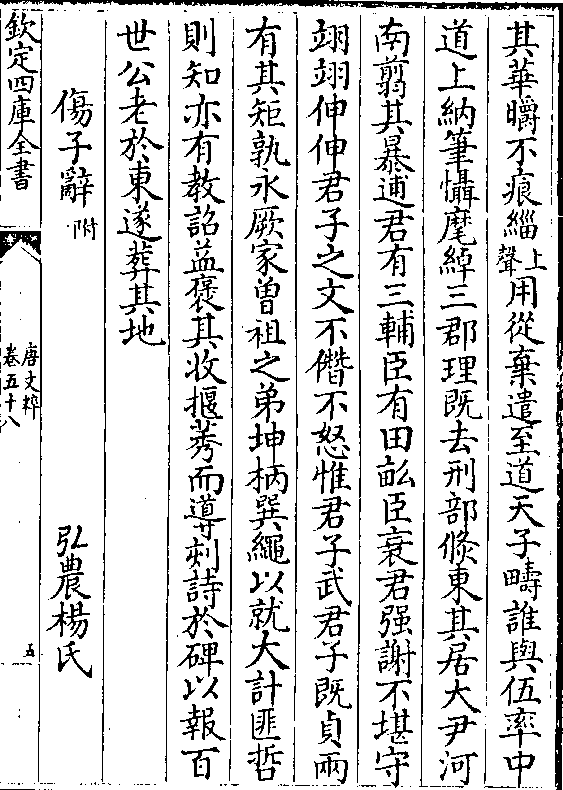 其華㬭不痕緇上聲用從棄遣至道天子疇誰與伍率中
道上納筆懾麾綽三郡理既去刑部翛東其居大尹河
南翦其暴逋君有三輔臣有田畆臣衰君强謝不堪守
翊翊伸伸君子之文不僭不怒惟君子武君子既貞兩
有其矩孰永厥家曽祖之弟坤柄㢲繩以就大計匪哲
則知亦有教詔葢褒其收揠莠而導刻詩於碑以報百
世公老於東遂葬其地
傷子辭附 弘農楊氏
欽定四庫全書
唐文粹
卷五十八
五